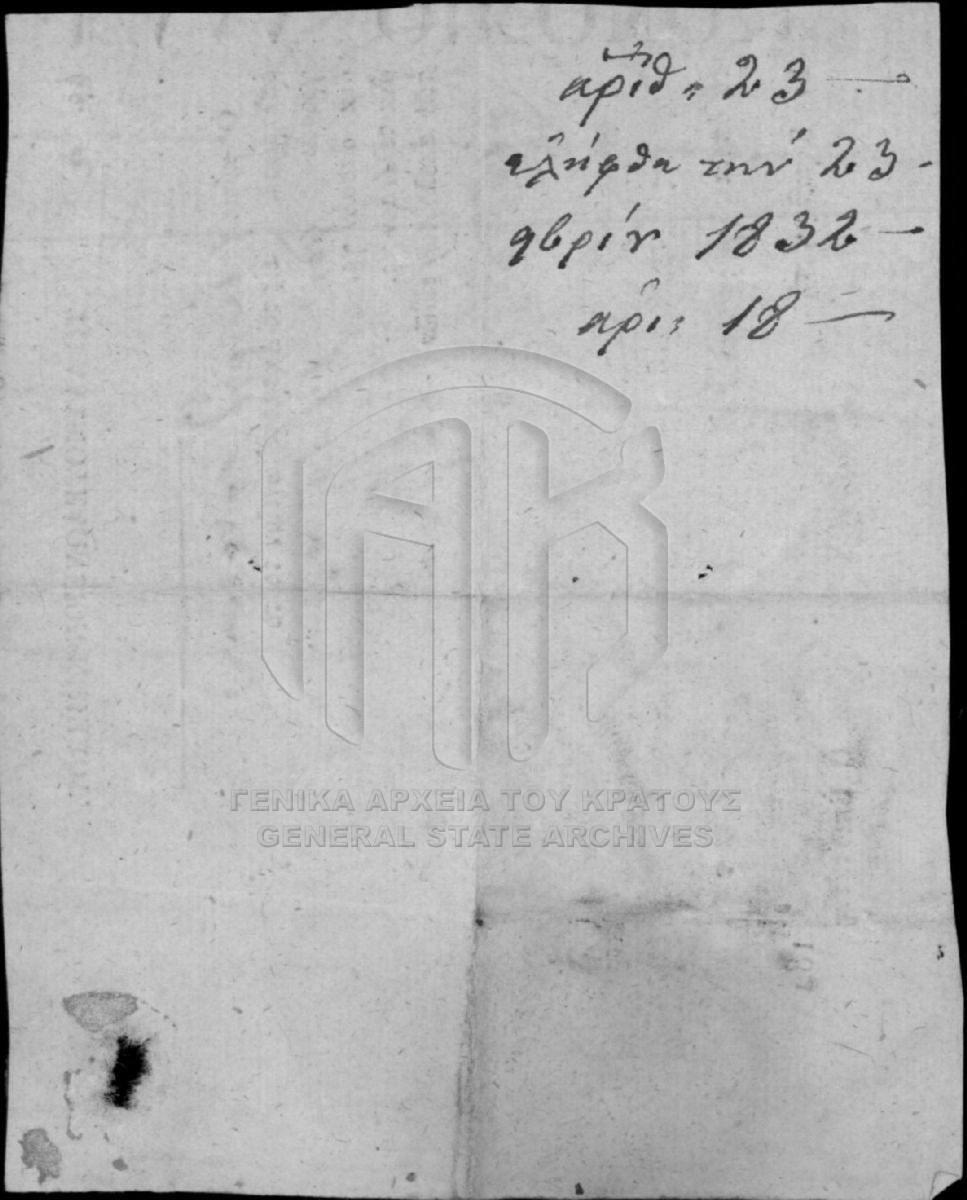 αριθ: 23 —
ελήφθη την 23 -
9βρίου 1832 —
αρι: 18 —
ΓΕΝΙΚΑ ΑΡΧΕΙΑ ΤΟΥ ΚΡΑΤΟΥΣ
GENERAL STATE ARCHIVES